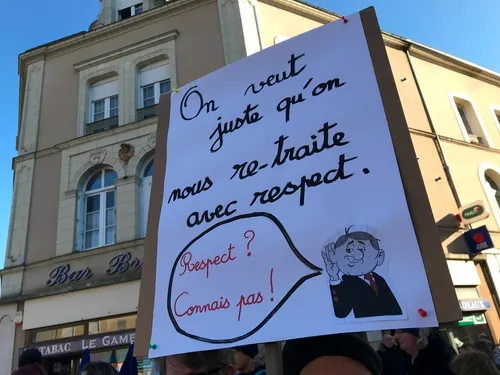 On veut
juste qu'on
nous re-traite
avec respect.
Respect ?
Connais pas !
Bar Br
TABAC LE GAM